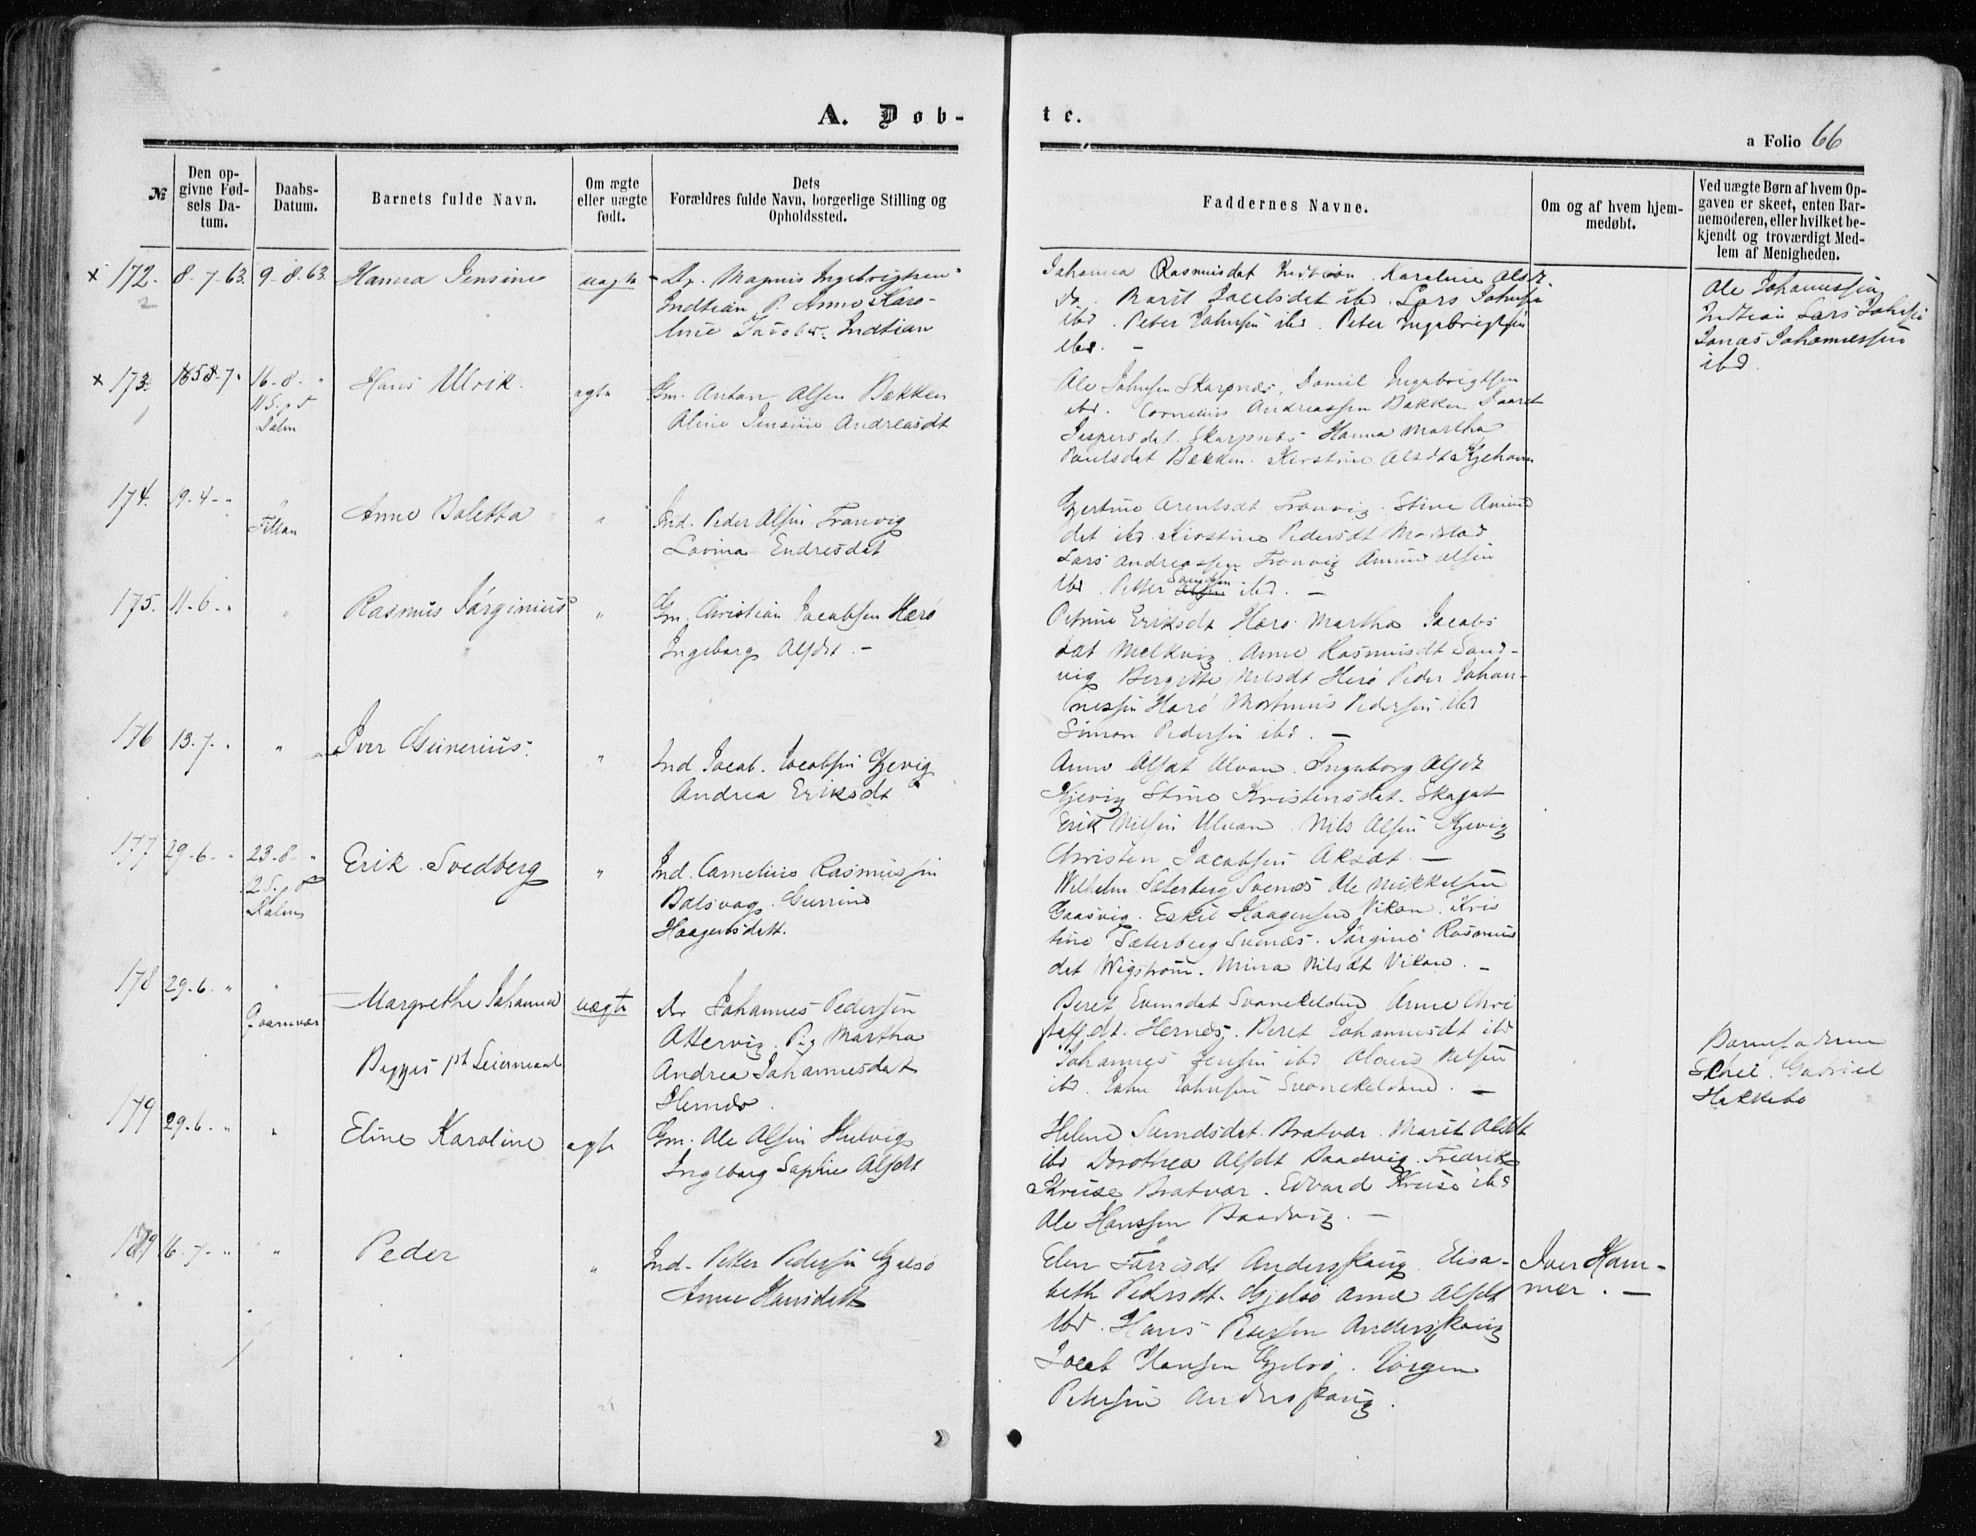 A. Døb-
te.
a Folio 66
№
Den opgivne Fødsels Datum.
Daabs-Datum.
Barnets fulde Navn.
Om ægte eller uægte født.
Dets Forældres fulde Navn, borgerlige Stilling og Opholdssted.
Faddernes Navne.
Om og af hvem hjemmedøbt.
Ved uægte Børn af hvem Opgaven er skeet, enten Barnemoderen, eller hvilket bekjendt og troværdigt Medlem af Menigheden.
× 172. 8-7-63. 9-8-63. Hanna Jensine uægte Dr. Magnus Ingebrigtsen
Indtian P. Anne Karo-
line Jacobsd. Indtian
Johanna Rasmusdat Indtian. Karoline Olsdt.
do. Marit Jacobsdat ibd. Lars Johnsen
ibd. Peter Johnsen ibd. Peter Ingebrigtsen
ibd. —
Ole Johannessen
Indtian Lars Johnsen
Jonas Johannessen
ibd.
× 173. 16-8- " Hans Ulrik. ægte Gm. Anton Olsen Bakken
Oline Jensine Andreasdt
Ole Johnsen Skarpnes, Daniel Ingebrigtsen
ibd. Cornelius Andreassen Bakken
Jespersdat. Skarpnes Hanna Martha
Paulsdat Bakken. Kirstine Olsdt
174. 19-4- " Fillan Anne Boletta " Ind. Peder Olsen Tranvig
Lovina Endresdat
Gjertine Arentsdt Tranvig. Stine Amund
dat ibd Kirstine Pedersdt
Lars Andreassen Tranvig Amund Olsen
ibd. Petter ibd. —
175. 11-6- " " Rasmus Jørginius " Gm. Christian Jacobsen Herø
Ingeborg Olsdt. —
Petrine Eriksdt Herø. Martha Jacobs
dat Melkvig. Anne Rasmusdt Sand-
vig Bergitte Nilsdt Herø Peder Johan-
nessen Herø Martinus Pedersen ibd
Simon Pedersen ibd. —
176 13-7- " " Iver Gunerius. " Ind Jacob Jacobsen Gjevig
Andrea Eriksdt
Anne Olsdt Ulvan. Ingeborg Olsdt
Gjevig Stine Kristensdat. Skagat
Erik Nilsen Ulvan. Nils Olsen Gjevig
Christen Jacobsen —
177 29-6- " 23-8- " Erik Svedberg " Ind. Cornelius Rasmussen
Balsvag. Gurine
Haagensdatt.
Wilhelm Sæterberg Svenes Ole Mikkelsen
Gaasvig. Eskil Haagensen Vikan. Kris
tine Sæterberg Svenæs. Jørgine Rasmus
dat Wigstrøm. Mina Nilsdt Vikan. —
178 29-6. " " Qvanvær Margrethe Johanna uægte Dr Johannes Pedersen
Attervig. Pig Martha
Andrea Johannesdat
Hernes.
Begges 1ste Leiermaal
Beret Evensdat Svanekelsland. Anne Chri
stofdt. Hernes. Beret Johannesdt ibd
Johannes Jensen ibd
ibd. John Johnsen Svanekelsland. —
Barnefaderen
Gabriel
Hakkebo
179 29-6- " " Eline Karoline ægte Gm. Ole Olsen Hulvig
Ingeborg Sophie Olsdt
Helene Bratvær. Marit Olsdt
ibd Dorothea Olsdt Baadvig. Fredrik
Kruse Bratvær. Edvard Kruse ibd
Ole Hanssen Baadvig. —
179. 6-7- " " Peder " Ind. Petter Pedersen Gjelsø
Anne Hansdatt
Elen Andersskaug. Elisa-
beth Pedersdt. Gjelsø Anne Olsdt
ibd. Hans Petersen Andersskaug
Jacob Hansen Gjelsø. Jørgen
Petersen Andersskaug.
Iver Ham-
mer. —